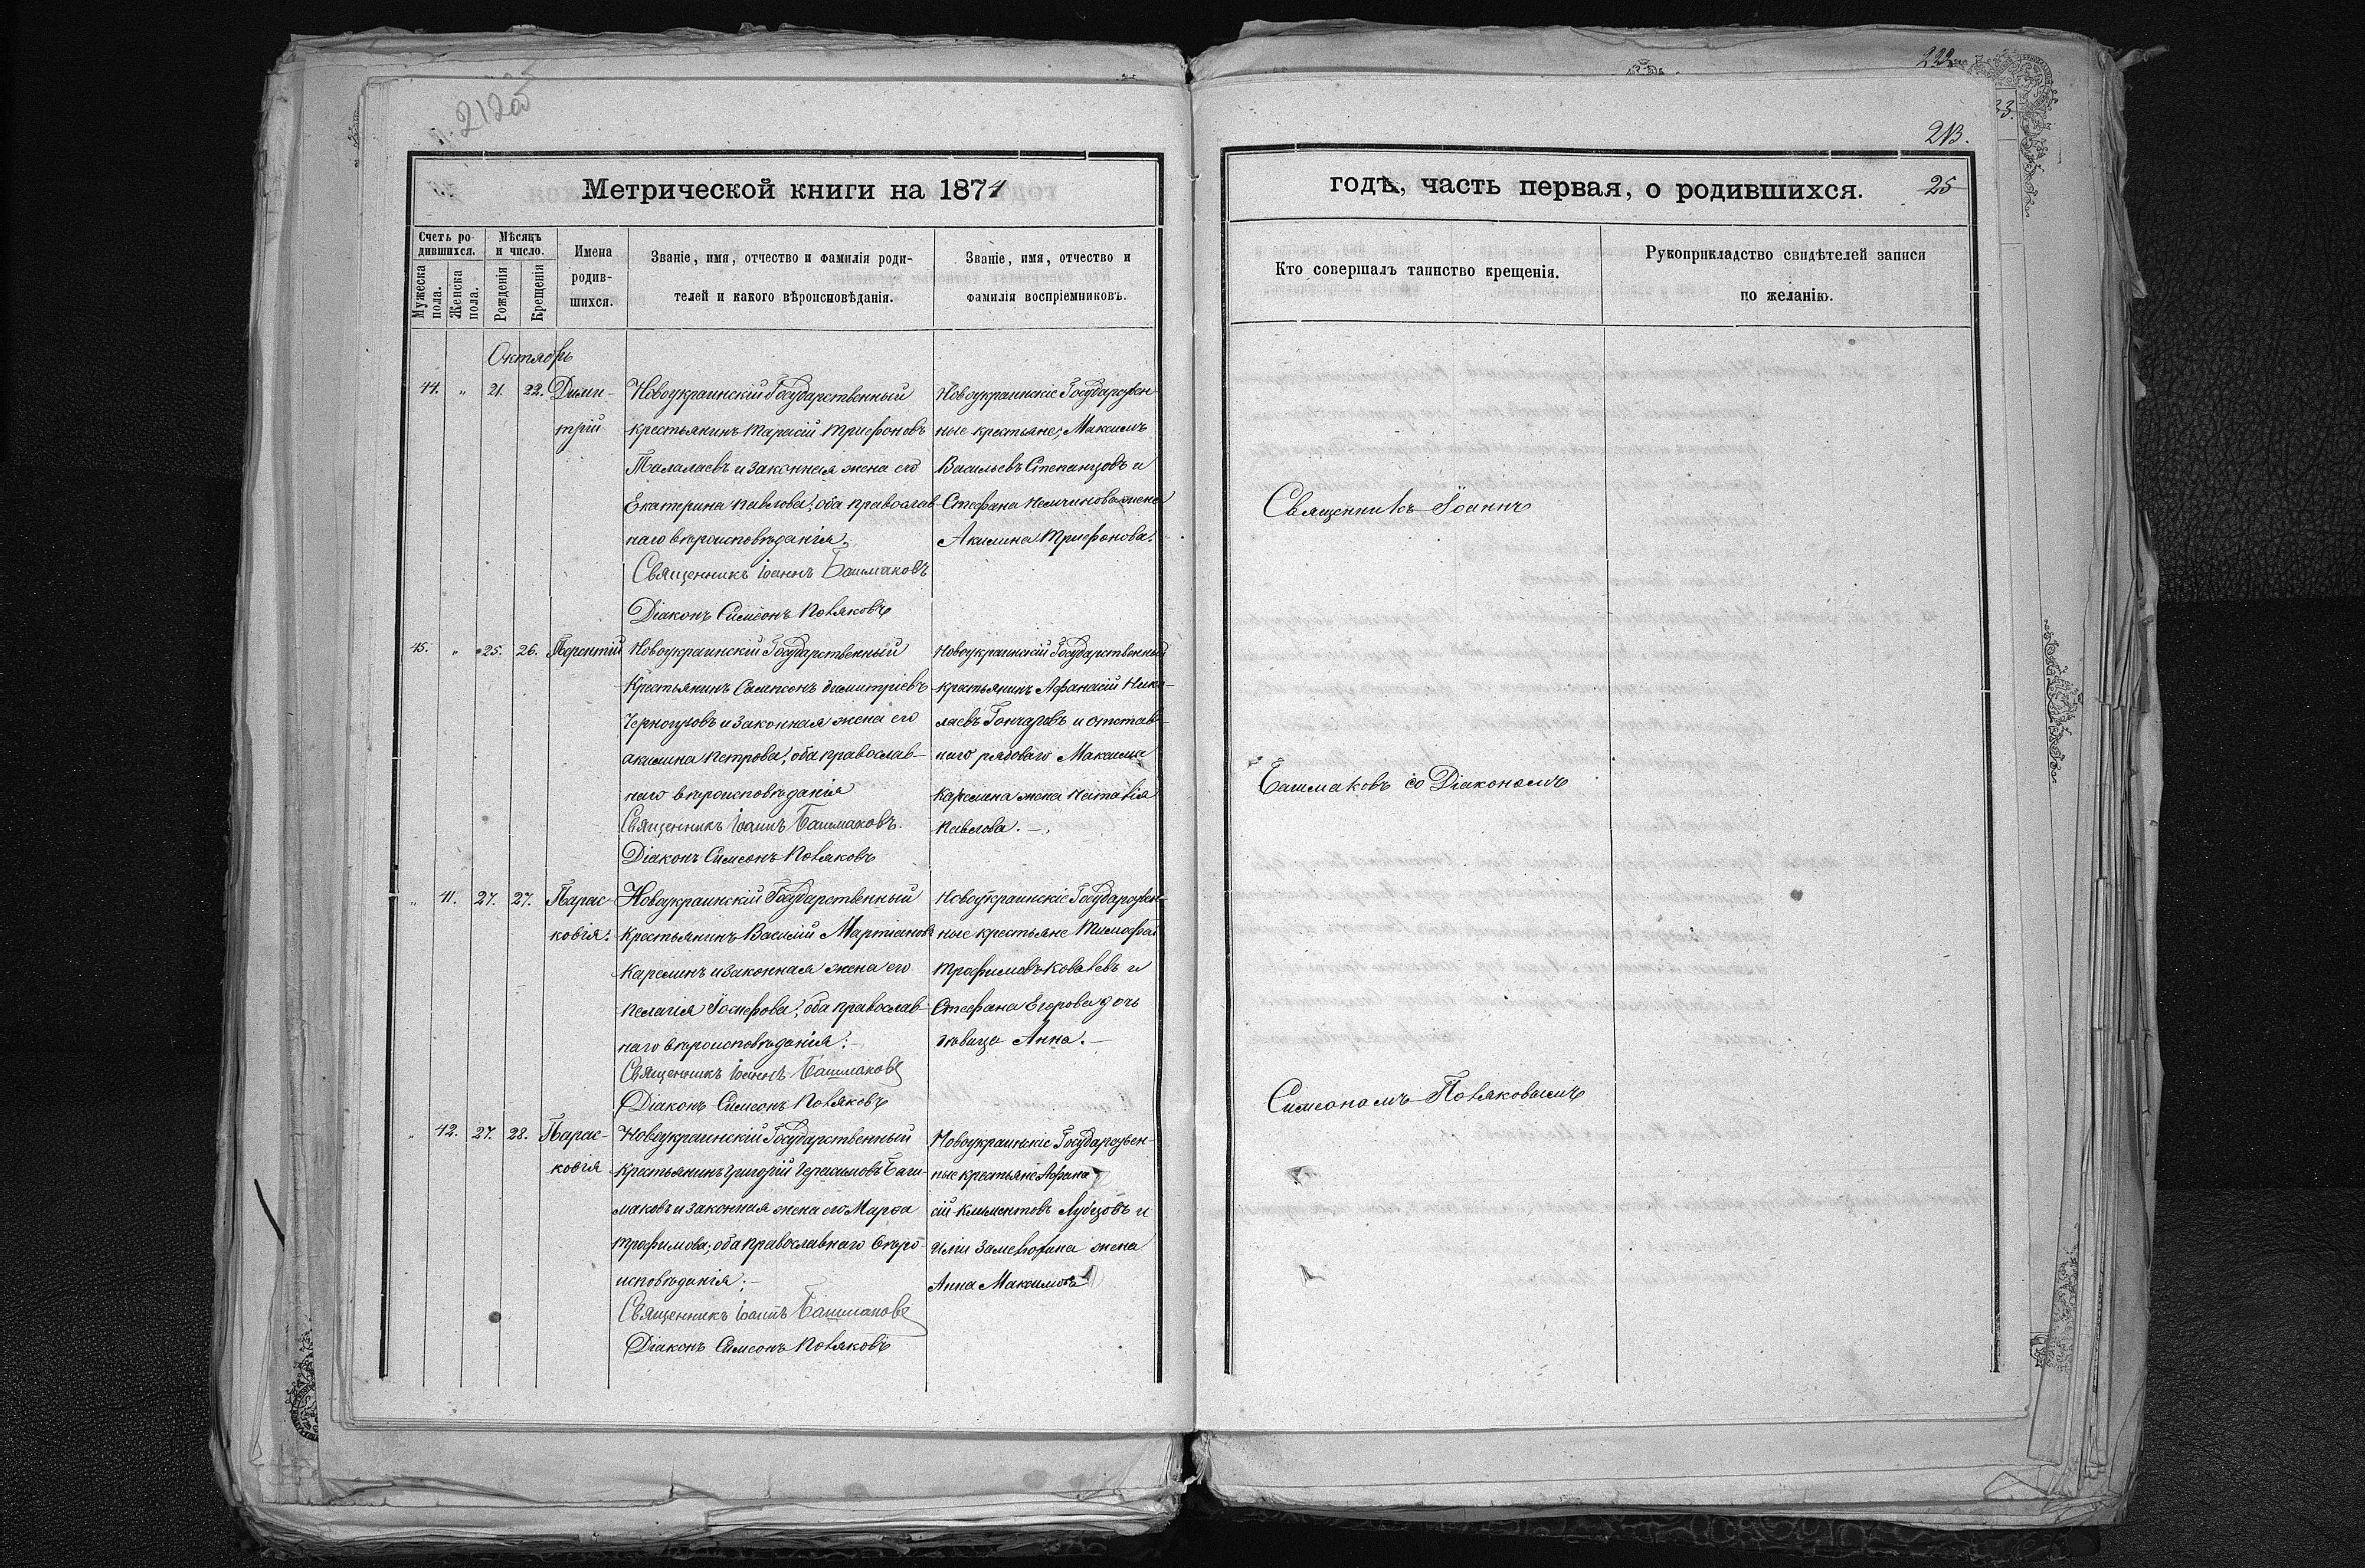 212об
222
213.
Метрической книги на 1871
годъ, часть первая, о родившихся.
25
Счетъ ро-
дившихся.
Мѣсяцъ
и число.
Мужеска
пола.
Женска
пола.
Рожденія
Крещенія
Имена
родив-
шихся.
Званіе, имя, отчество и фамилія роди-
телей и какого вѣроисповѣданія.
Званіе, имя, отчество и
фамилія воспріемниковъ.
Кто совершалъ таинство крещенія.
Рукоприкладство свидѣтелей записи
по желанію.
Октябрь
44. „ 21. 22. Дими-
трій
Новоукраинскій Государственный
крестьянинъ Тарасій Трифоновъ
Талалаевъ и законная жена его
Екатерина Павлова; оба православ-
наго вѣроисповѣданія.
Священникъ Іоаннъ Башмаковъ
Діаконъ Симеонъ Поляковъ
Новоукраинскіе Государствен-
ные крестьяне; Максимъ
Васильевъ Степанцовъ и
Стефана Немчинова жена
Акилина Трифонова.
45. „ 25. 26. Терентій
Новоукраинскій Государственный
Крестьянинъ Сампсонъ Димитріевъ
Черногузовъ и законная жена его
Акилина Петрова; оба православ-
наго вѣроисповѣданія
Священникъ Іоаннъ Башмаковъ.
Діаконъ Симеонъ Поляковъ
Новоукраинскій Государственный
крестьянинъ Афанасій Нико-
лаевъ Гончаровъ и отстав-
наго рядоваго Максима
Карелина жена Наталія
Павлова. —
„ 41. 27. 27. Парас-
ковія.
Новоукраинскій Государственный
Крестьянинъ Василій Мартіановъ
Карелинъ и законная жена его
Пелагія Іосифова; оба православ-
наго вѣроисповѣданія: —
Священникъ Іоаннъ Башмаковъ
Діаконъ Симеонъ Поляковъ
Новоукраинскіе Государствен-
ные крестьяне Тимофей
Трофимовъ Ковалевъ и
Стефана Егорова дочь
дѣвица Анна. —
„ 42. 27. 28. Парас-
ковія
Новоукраинскій Государственный
крестьянинъ Григорій Герасимовъ Баш-
маковъ и законная жена его Марфа
Трофимова; оба православнаго вѣро-
исповѣданія; —
Священникъ Іоаннъ Башмаковъ
Діаконъ Симеонъ Поляковъ
Новоукраинскіе Государствен-
ные крестьяне Афана
сій Климентовъ и
жена
Анна Максимова
Священникъ Іоаннъ
Башмаковъ со Діакономъ
Симеономъ Поляковымъ